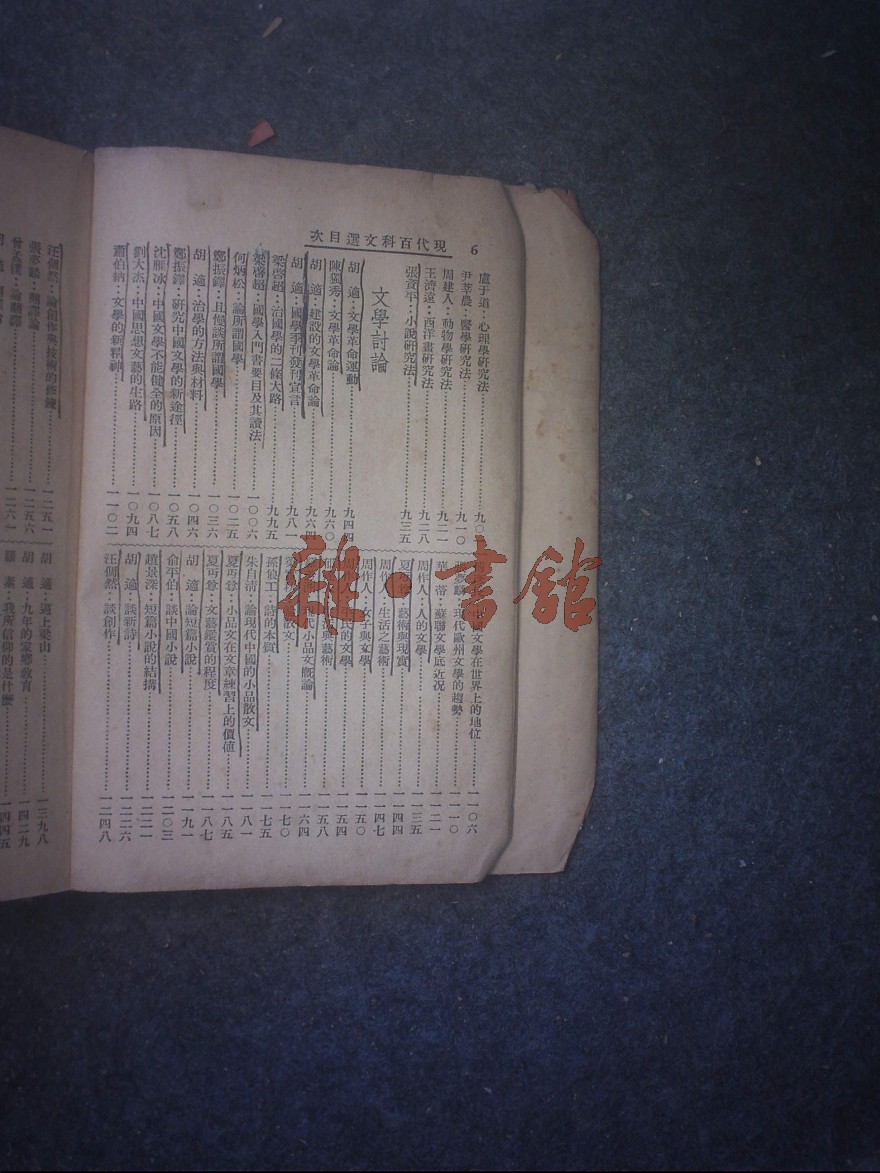 現代百科文選目次
6
盧于道：心理學研究法……九〇一
尹莘農：醫學研究法……九一〇
周建人：動物學研究法……九二一
王濟遠：西洋畫研究法……九二八
張資平：小說研究法……九三五
文學討論
胡 適：文學革命運動……九四四
陳獨秀：文學革命論……九六〇
胡 適：建設的文學革命論……九六四
胡 適：國學季刊發刊宣言……九八一
梁啓超：治國學的二條大路……九九五
梁啓超：國學入門書要目及其讀法……一〇〇六
何炳松：論所謂國學……一〇二五
鄭振鐸：且慢談所謂國學……一〇三六
胡 適：治學的方法與材料……一〇四六
鄭振鐸：研究中國文學的新途徑……一〇五八
沈雁冰：中國文學不能健全的原因……一〇八七
劉大杰：中國思想文藝的生路……一〇九四
蕭伯納：文學的新精神……一一〇二
文學在世界上的地位……一一〇六
現代歐州文學的趨勢……一一一〇
華 蒂：蘇聯文學底近況……一一二一
周作人：人的文學……一一三五
藝術與現實……一一四四
周作人：生活之藝術……一一四七
周作人：女子與文學……一一五〇
民的文學……一一五四
與藝術……一一五八
代小品文概論……一一六四
散文……一一七〇
孫俍工：詩的本質……一一七五
朱自清：論現代中國的小品散文……一一八一
夏丏尊：小品文在文章練習上的價値……一一八五
夏丏尊：文藝鑑賞的程度……一一八七
胡 適：論短篇小說……一一九一
俞平伯：談中國小說……一二〇三
趙景深：短篇小說的結搆……一二二一
胡 適：談新詩……一二二六
汪倜然：談創作……一二四八
汪倜然：論創作與技術的修練……一二五一
張夢麟：翻譯論……一二五六
曾孟樸：論翻譯……一二六一
胡 適：逼上梁山……一三九八
胡 適：九年的家鄉敎育……一四二九
羅 素：我所信仰的是什麽……一四四五
雜·書館